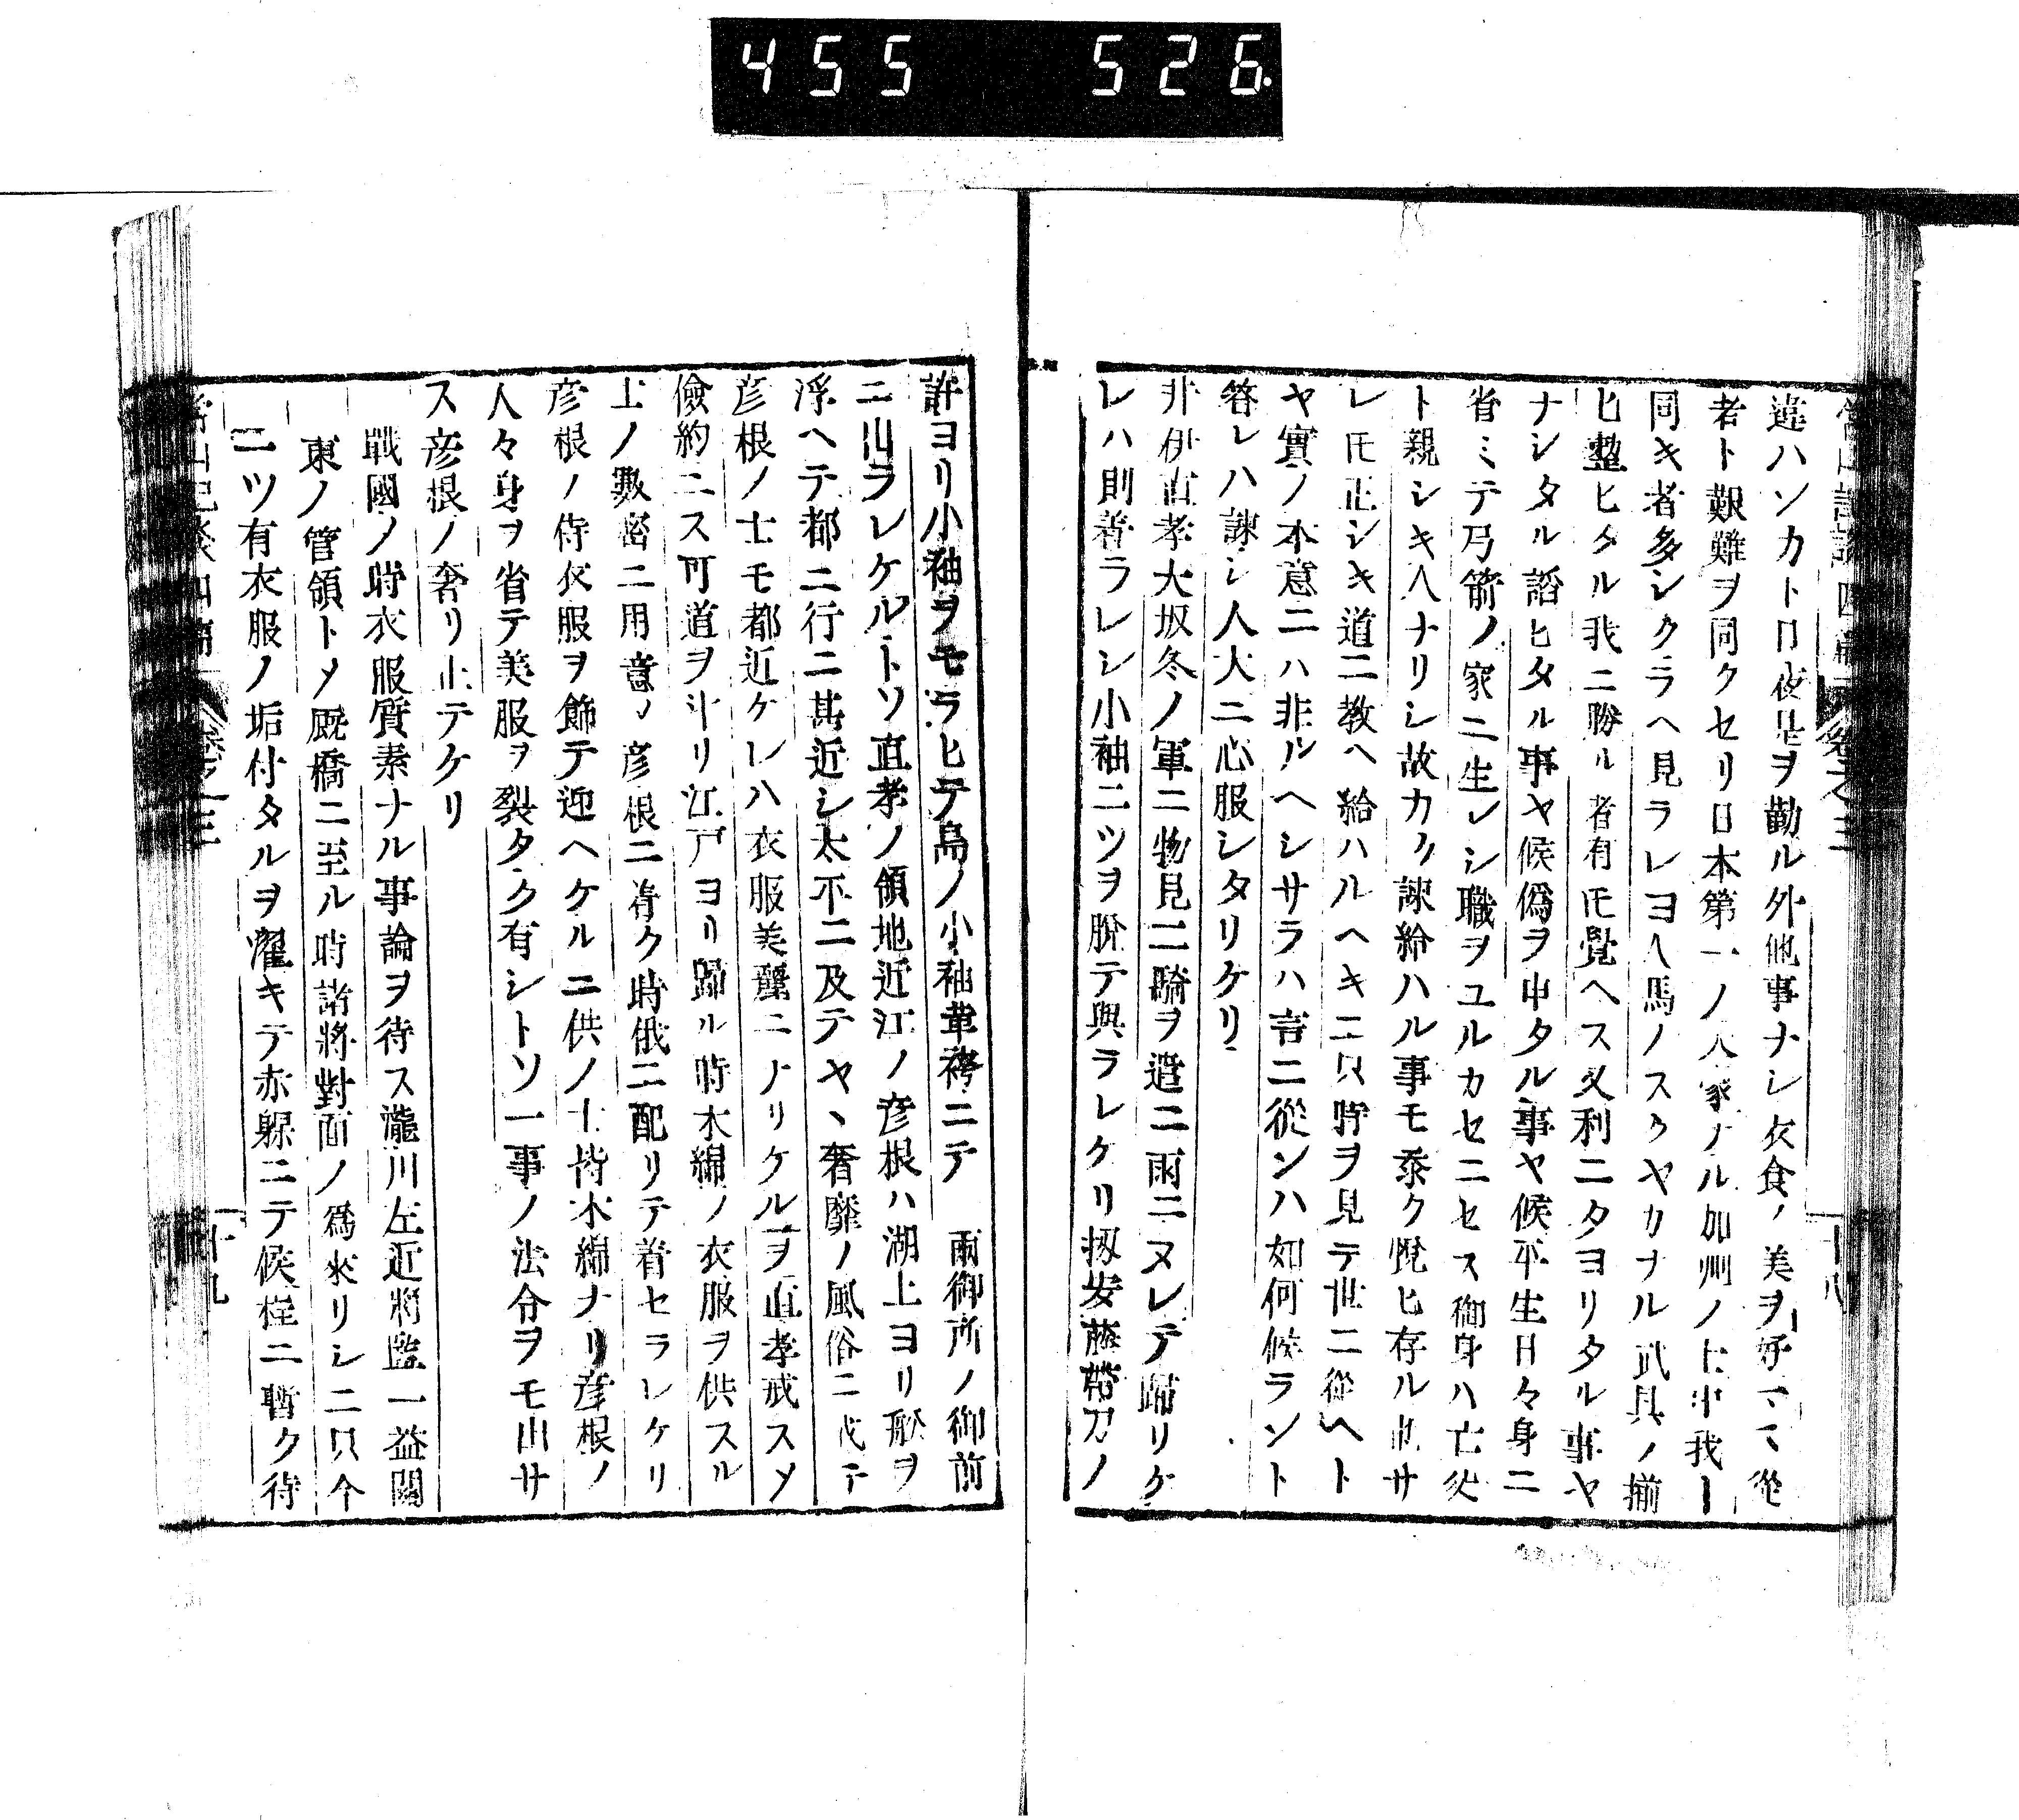 455 526
違ハンカト日夜是ヲ勸ル外他事ナシ衣食ノ美ヲ好マヽ從
者ト艱難ヲ同クセリ日本第一ノ人家ナル加州ノ士中我ー
同キ者多シクラヘ見ラレヨ人馬ノスクヤカナル武具ノ揃
ヒ整ヒタル我ニ勝ル者有𪜈覺ヘス又利ニタヨリタル事ヤ
ナシタル謟ヒタル事ヤ候僞ヲ申タル事ヤ候平生日々身ニ
省ミテ弓箭ノ家ニ生レシ職ヲユルカセニセス御身ハ亡父
ト親シキ人ナリシ故カク諫給ハル事モ忝ク悅ヒ存ル也サ
レ𪜈正シキ道ニ教ヘ給ハルヘキニ只時ヲ見テ世ニ從ヘト
ヤ實ノ本意ニハ非ルヘシサラハ言ニ從ンハ如何候ラント
答レハ諫シ人大ニ心服シタリケリ
井伊直孝大坂冬ノ軍ニ物見ニ騎ヲ遣ニ雨ニヌレテ歸リケ
レハ則着ラレシ小袖二ツヲ脫テ與ラレケリ扨安藤帶刀ノ
許ヨリ小袖ヲモラヒテ島ノ小袖韋袴ニテ 兩御所ノ御前
ニ出ラレケルトソ直孝ノ領地近江ノ彦根ハ湖上ヨリ舩ヲ
浮ヘテ都ニ行ニ甚近シ太平ニ及テヤヽ奢靡ノ風俗ニ成テ
彦根ノ士モ都近ケレハ衣服美麗ニナリケルヿヲ直孝戒メ
儉約ニス可道ヲ計リ江戸ヨリ歸ル時木綿ノ衣服ヲ供スル
士ノ數密ニ用意ノ彦根ニ着ク時俄ニ配リテ着セラレケリ
彦根ノ侍衣服ヲ飾テ迎ヘケルニ供ノ士皆木綿ナリ彦根ノ
人々身ヲ省テ美服ヲ裂タク有シトソ一事ノ法令ヲモ出サ
ス彦根ノ奢リ止テケリ
戰國ノ時衣服質素ナル事論ヲ待ス瀧川左近將監一益關
東ノ管領トメ厩橋ニ至ル時諸將對面ノ爲來リシニ只今
二ツ有衣服ノ垢付タルヲ濯キテ赤躶ニテ候程ニ暫ク待
十九